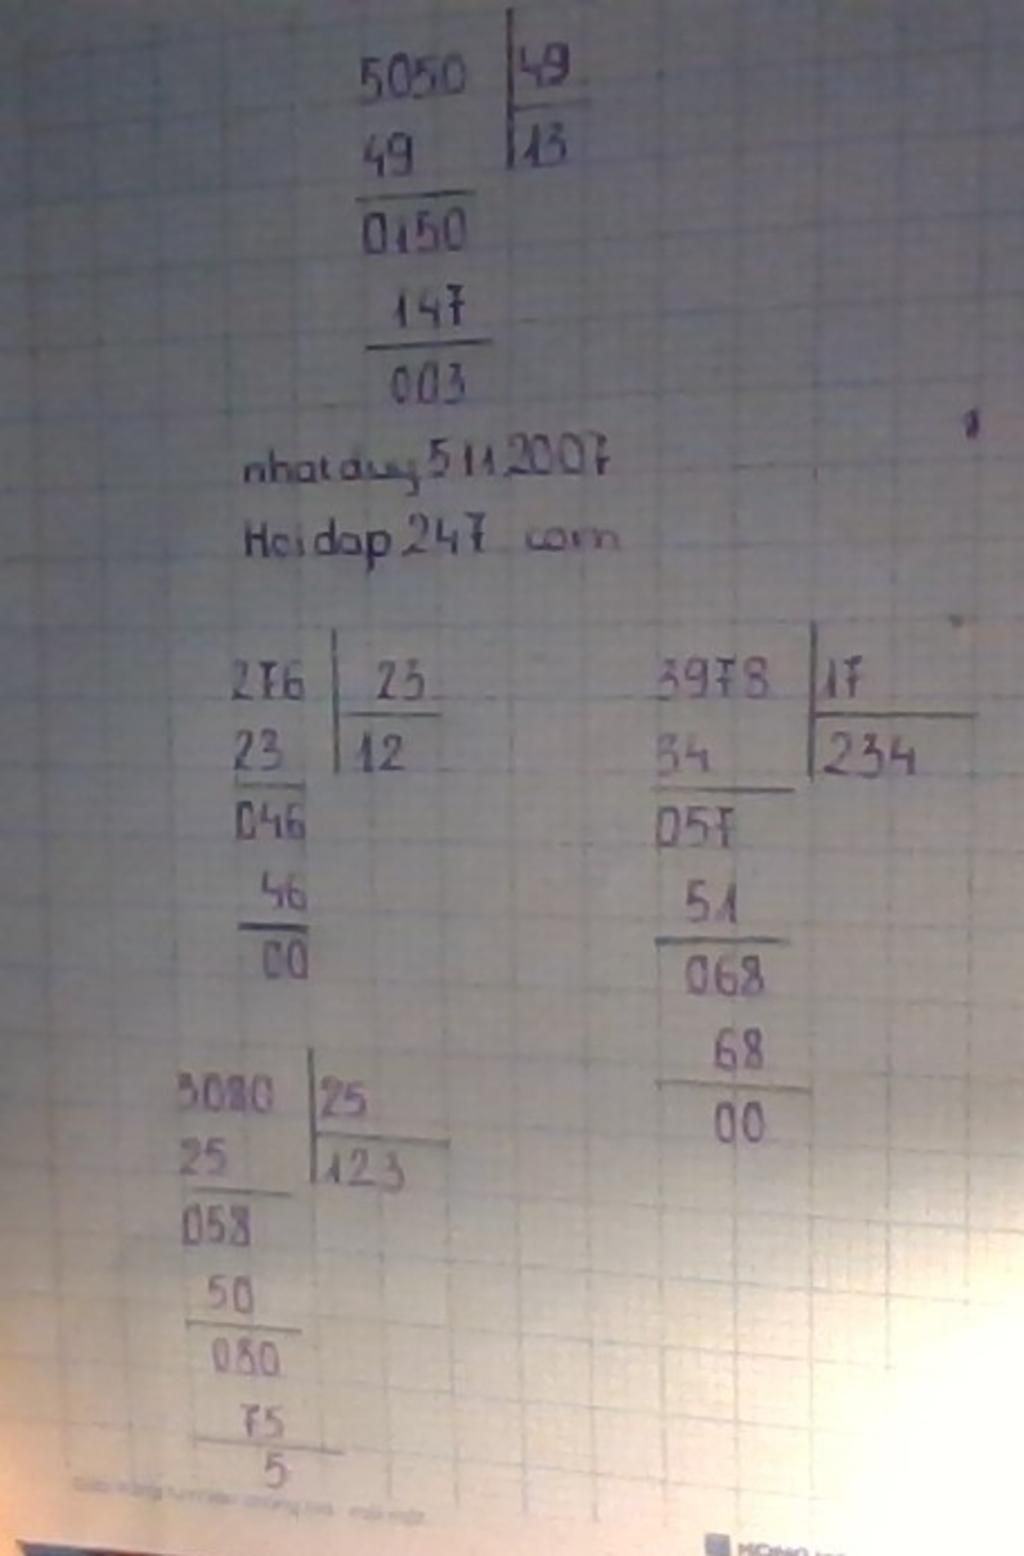 5050 49
49 13
0150
147
003
nhatduy5112007
Hoidap247 com
276 23
23 12
046
46
00
3978 17
34 234
057
51
068
68
00
3080 25
25 123
058
50
080
75
5